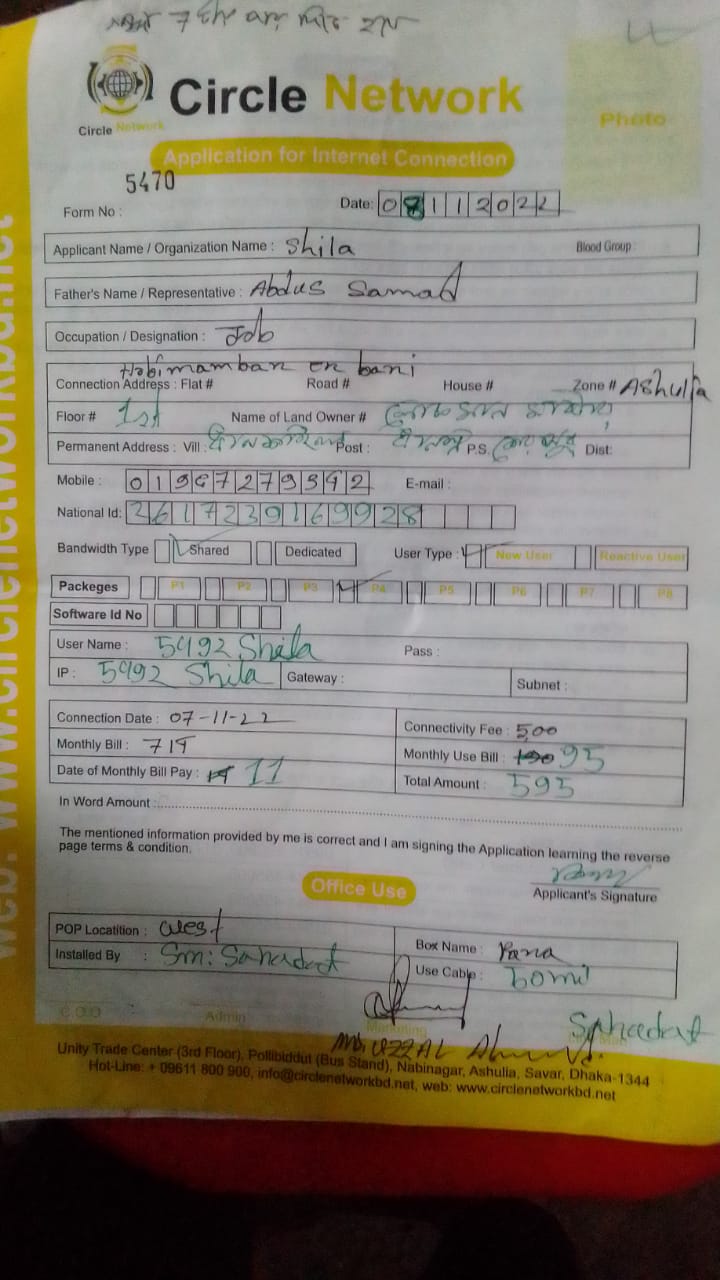 Circle Network
Circle Network
Photo
Application for Internet Connection
5470
Form No :
Date: 08112022
Applicant Name / Organization Name : Shila
Blood Group:
Father's Name / Representative : Abdus Samad
Occupation / Designation : Job
Connection Address : Flat # Road # House # Zone # Ashulia
Floor # 1st Name of Land Owner #
Permanent Address : Vill: Post : P.S. Dist:
Mobile : E-mail :
National Id: 2617239169928
Bandwidth Type Shared Dedicated User Type : New User Reactive User
Packeges P1 P2 P3 P4 P5 P6 P7 P8
Software Id No
User Name : 5492 Shila Pass :
IP : 5492 Shila Gateway : Subnet :
Connection Date : 07-11-22 Connectivity Fee : 500
Monthly Bill : Monthly Use Bill : 95
Date of Monthly Bill Pay : 11 Total Amount : 595
In Word Amount :
The mentioned information provided by me is correct and I am signing the Application learning the reverse
page terms & condition.
Office Use
Applicant's Signature
POP Locatition : West Box Name : Rana
Installed By : Sm: Sahadat Use Cable :
C.O.O Admin Marketing
Sahadat
Unity Trade Center (3rd Floor), Pollibiddut (Bus Stand), Nabinagar, Ashulia, Savar, Dhaka-1344
Hot-Line: + 09611 800 900, info@circlenetworkbd.net, web: www.circlenetworkbd.net
web: www.circlenetworkbd.net